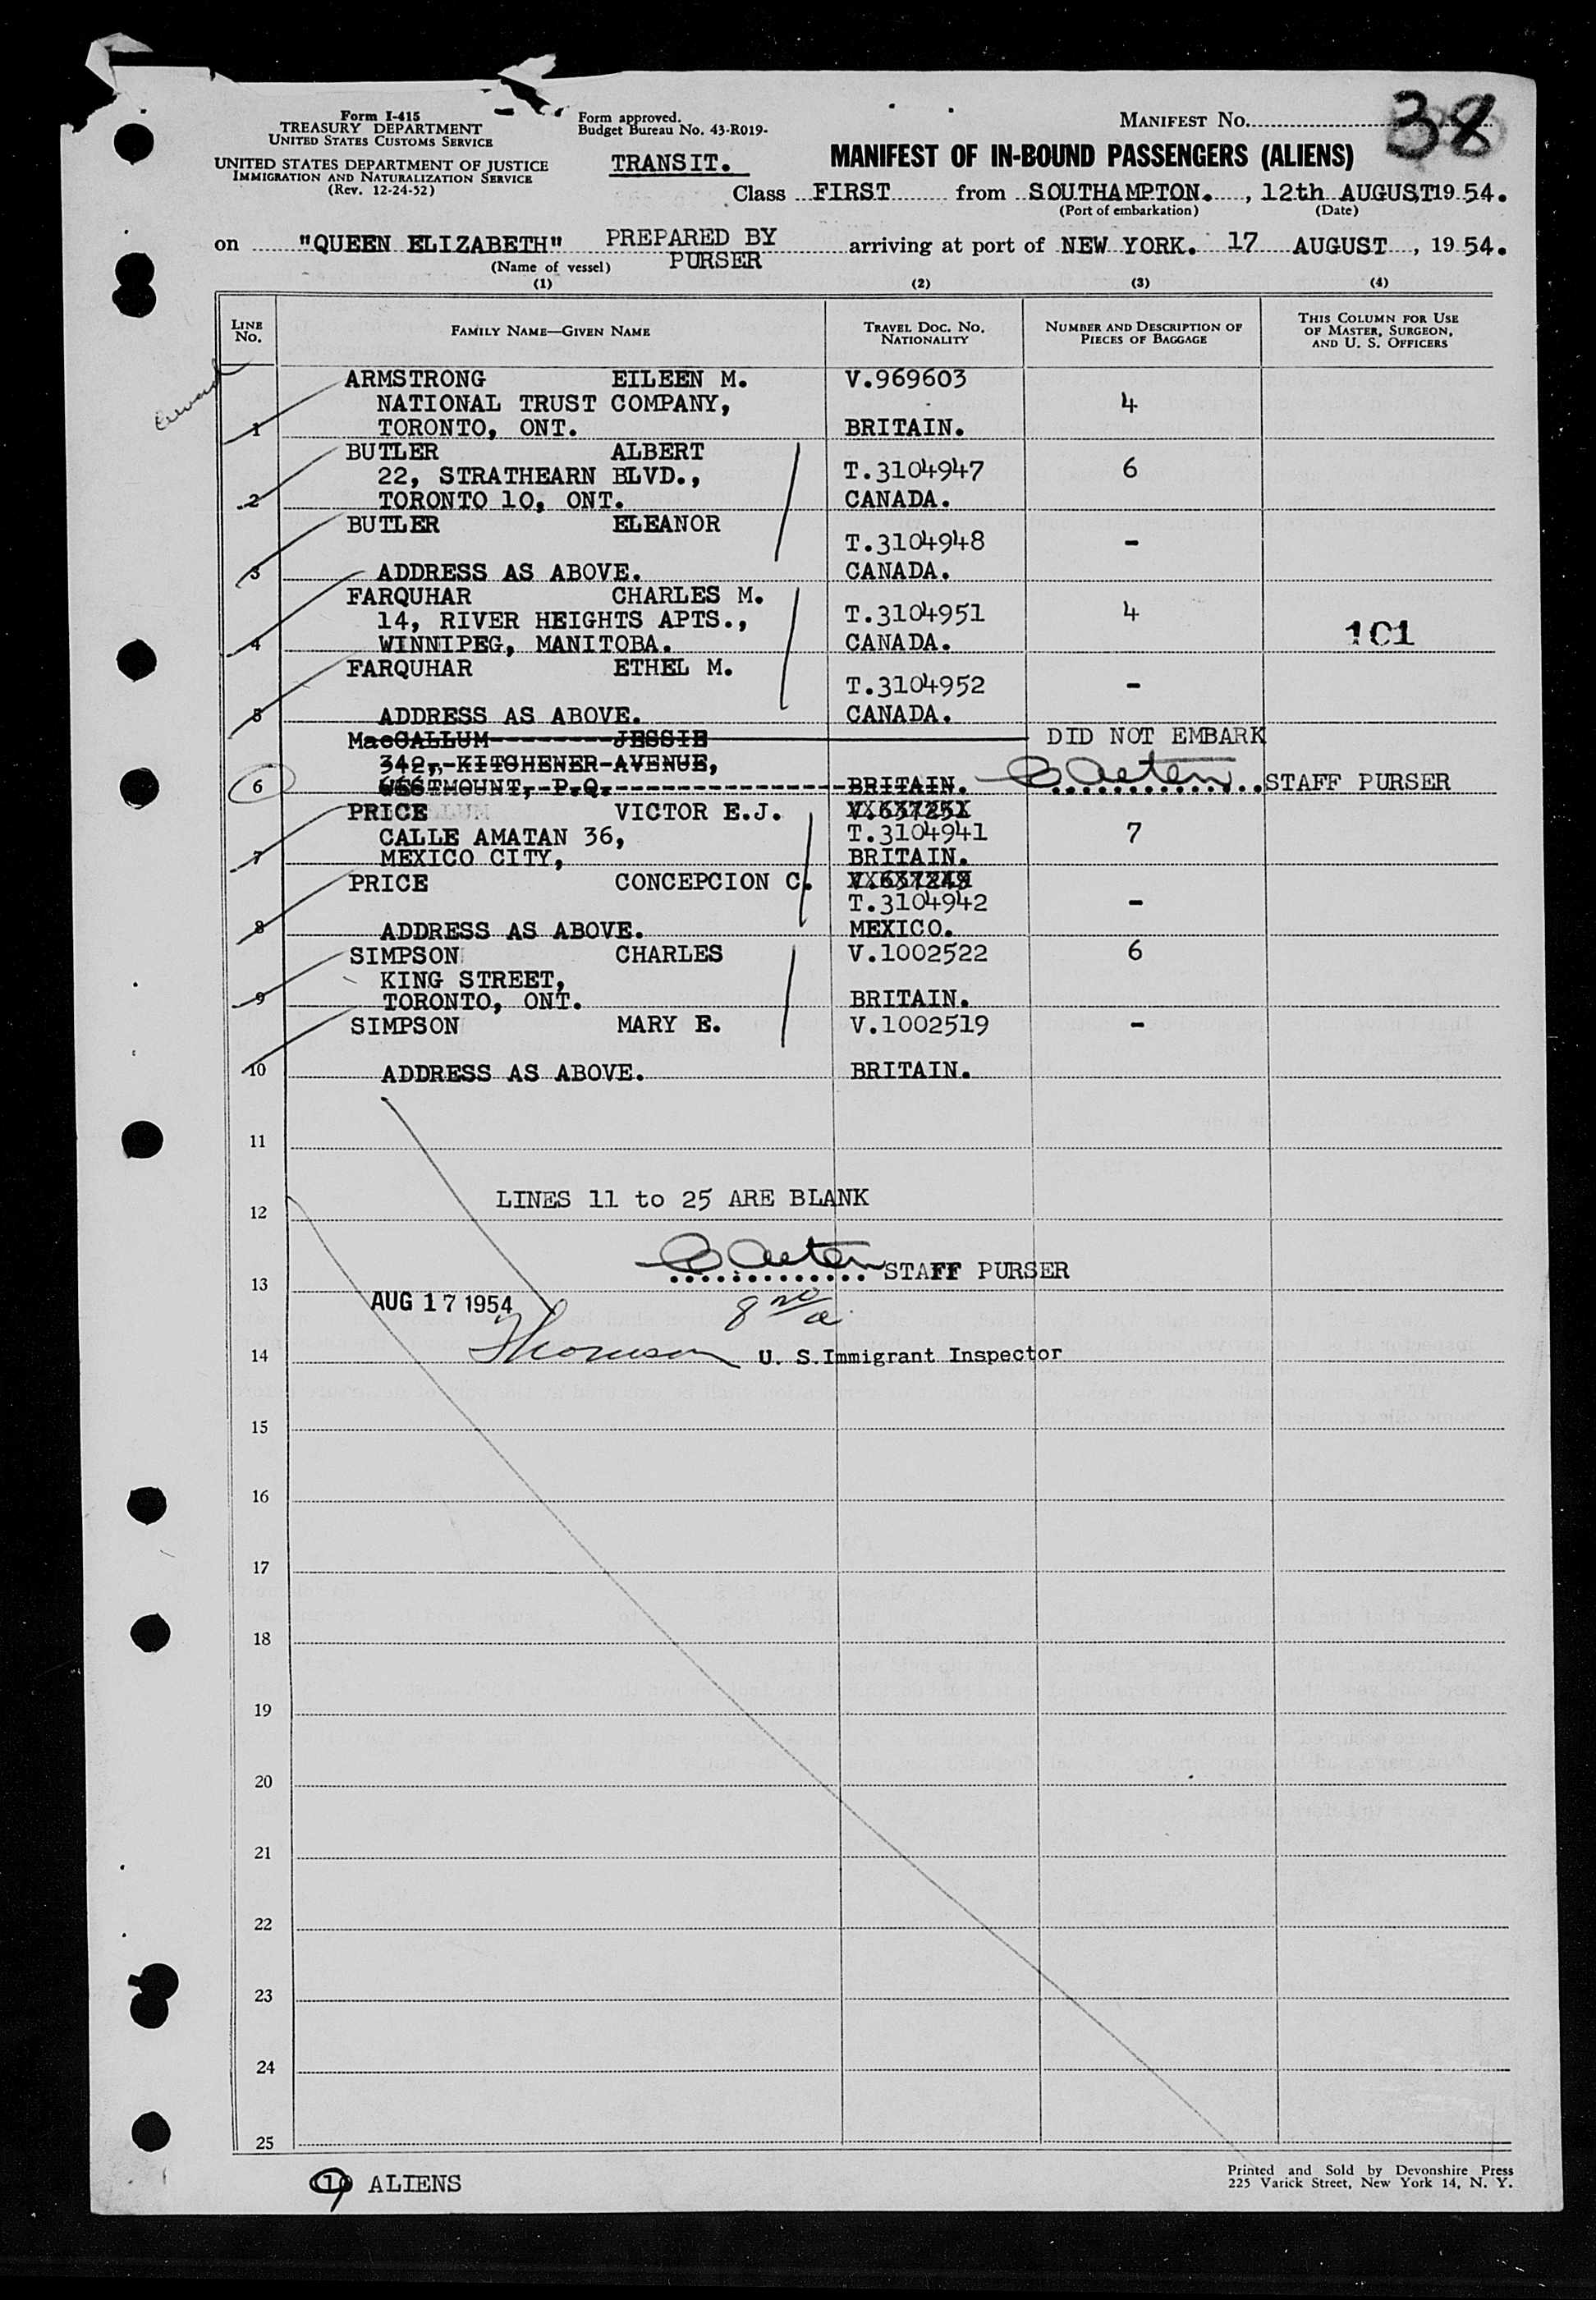 Form I-415
TREASURY DEPARTMENT
UNITED STATES CUSTOMS SERVICE
UNITED STATES DEPARTMENT OF JUSTICE
IMMIGRATION AND NATURALIZATION SERVICE
(Rev. 12-24-52)
Form approved.
Budget Bureau No. 43-R019-
TRANSIT.
MANIFEST NO. 38
MANIFEST OF IN-BOUND PASSENGERS (ALIENS)
Class FIRST from SOUTHAMPTON., 12th AUGUST, 19 54.
(Port of embarkation) (Date)
on "QUEEN ELIZABETH" PREPARED BY PURSER arriving at port of NEW YORK. 17 AUGUST, 19 54.
(Name of vessel)
(1) (2) (3) (4)
LINE NO. FAMILY NAME—GIVEN NAME TRAVEL DOC. NO. NATIONALITY NUMBER AND DESCRIPTION OF PIECES OF BAGGAGE THIS COLUMN FOR USE OF MASTER, SURGEON, AND U. S. OFFICERS
ARMSTRONG EILEEN M. V.969603
NATIONAL TRUST COMPANY, 4
1 TORONTO, ONT. BRITAIN.
BUTLER ALBERT
22, STRATHEARN BLVD., T.3104947 6
2 TORONTO 10, ONT. CANADA.
BUTLER ELEANOR
T.3104948 -
3 ADDRESS AS ABOVE. CANADA.
FARQUHAR CHARLES M.
14, RIVER HEIGHTS APTS., T.3104951 4
101
4 WINNIPEG, MANITOBA. CANADA.
FARQUHAR ETHEL M.
T.3104952 -
5 ADDRESS AS ABOVE. CANADA.
MacCALLUM JESSIE DID NOT EMBARK
342, KITCHENER AVENUE,
6 WESTMOUNT, P.Q. BRITAIN. STAFF PURSER
PRICE VICTOR E.J.
CALLE AMATAN 36, T.3104941 7
7 MEXICO CITY, BRITAIN.
PRICE CONCEPCION C.
T.3104942 -
8 ADDRESS AS ABOVE. MEXICO.
SIMPSON CHARLES V.1002522 6
KING STREET,
9 TORONTO, ONT. BRITAIN.
SIMPSON MARY E. V.1002519 -
10 ADDRESS AS ABOVE. BRITAIN.
11
LINES 11 to 25 ARE BLANK
12
STAFF PURSER
13
AUG 17 1954
14 Thomson U. S. Immigrant Inspector
15
16
17
18
19
20
21
22
23
24
25
9 ALIENS
Printed and Sold by Devonshire Press
225 Varick Street, New York 14, N. Y.